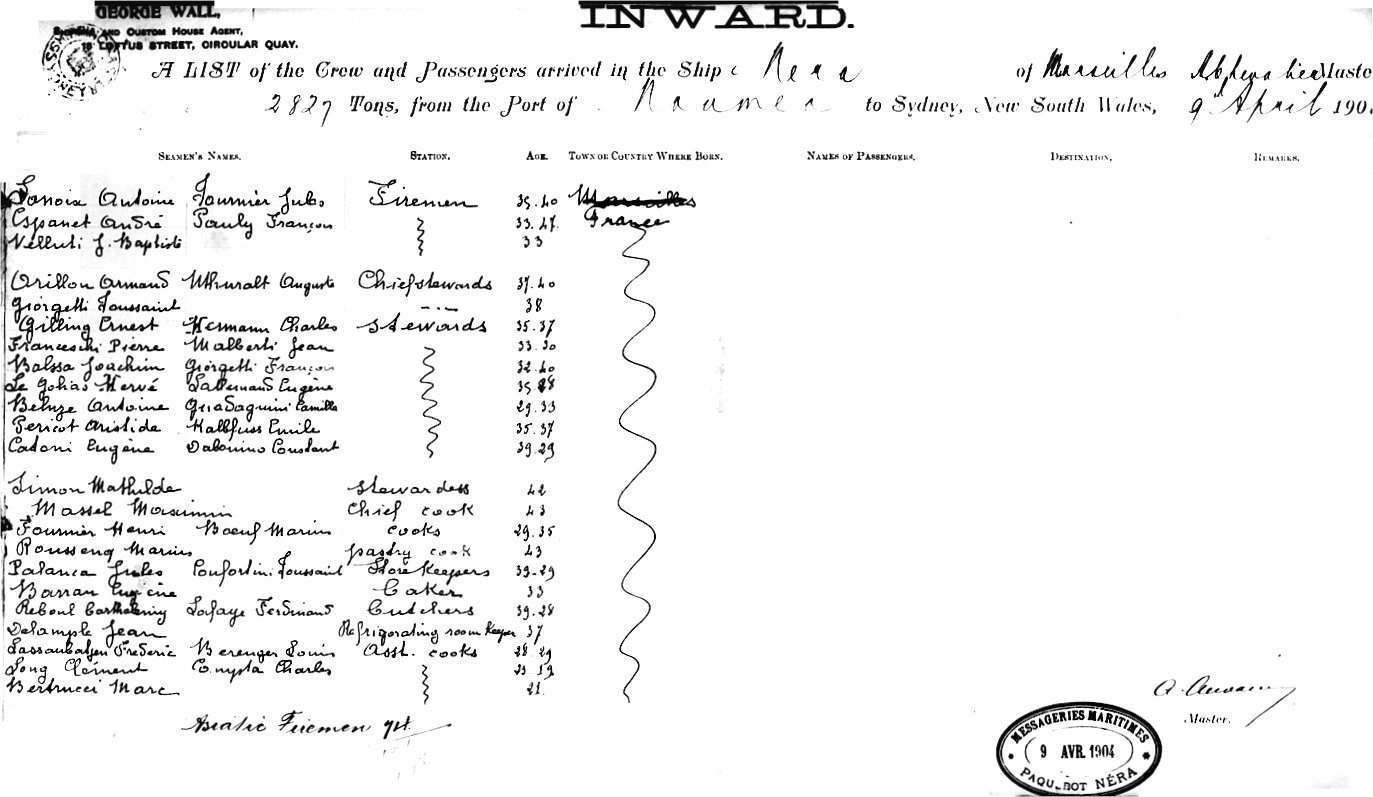 GEORGE WALL,
SHIPPING AND CUSTOM HOUSE AGENT,
LOFTUS STREET, CIRCULAR QUAY.
INWARD.
A LIST of the Crew and Passengers arrived in the Ship Nera of Marseilles Master
2827 Tons, from the Port of Noumea to Sydney, New South Wales, 9th April 190
SEAMEN'S NAMES. STATION. AGE. TOWN OR COUNTRY WHERE BORN. NAMES OF PASSENGERS. DESTINATION. REMARKS.
Antoine Fournier Jules Firemen 35.40 Marseilles
Espanet André Pauly François 33.47. France
Velluti J. Baptiste 33
Orillon Armand Auguste Chief stewards 37.40
Giorgetti Toussaint 38
Gilling Ernest Hermann Charles Stewards 35.37
Franceschi Pierre Malberti Jean 33.30
Balssa Joachim Giorgetti François 32.40
Le Hervé Lallemand Eugène 35
Antoine Camille 29.33
Pericot Aristide Kalbfuss Emile 35.37
Cadoni Eugène Constant 39.29
Simon Mathilde Stewardess 42
Massel Maximin Chief cook 43
Fournier Henri Boeuf Marius cooks 29.35
Marius pastry cook 43
Palanca Jules Confortini Toussaint Store Keepers 33-29
Barran Eugène Baker 33
Reboul Barthelemy Lafaye Ferdinand Butchers 39.28
Delample Jean Refrigorating room Keeper 37
Frederic Berenger Louis Asst. cooks 28 29
Long Clément Charles 23 19
Bertrucci Marc 21.
Asiatic Firemen
Master.
MESSAGERIES MARITIMES
9 AVR. 1904
PAQUEBOT NÉRA